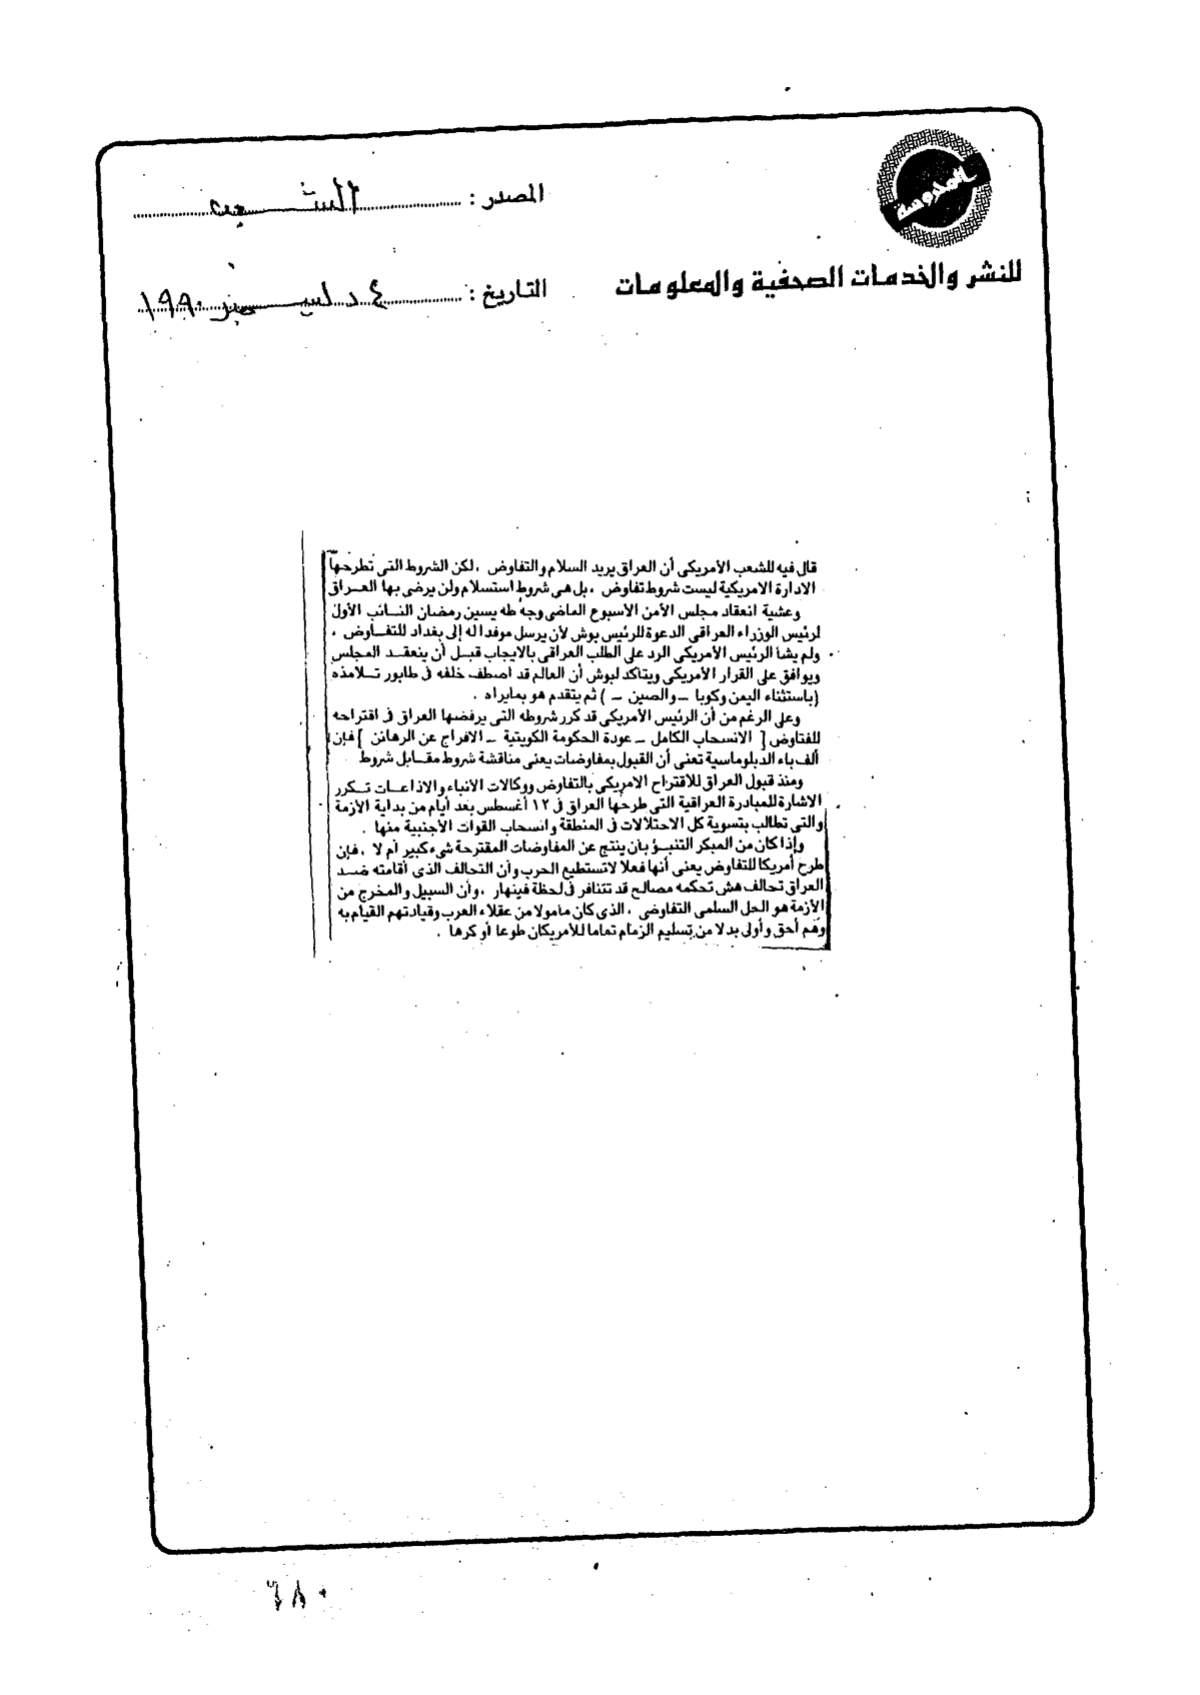 المحروسة
المصدر : الشعب
للنشر والخدمات الصحفية والمعلومات
التاريخ : ٤ ديسمبر ١٩٩٠
قال فيه للشعب الأمريكى أن العراق يريد السلام والتفاوض ، لكن الشروط التى تطرحها
الادارة الامريكية ليست شروط تفاوض ، بل هى شروط استسلام ولن يرضى بها العراق
وعشية انعقاد مجلس الأمن الأسبوع الماضى وجه طه يسين رمضان النائب الأول
لرئيس الوزراء العراقى الدعوة للرئيس بوش لأن يرسل موفدا له إلى بغداد للتفاوض ،
ولم يشأ الرئيس الأمريكى الرد على الطلب العراقى بالايجاب قبل أن ينعقد المجلس
ويوافق على القرار الأمريكى ويتاكد لبوش أن العالم قد اصطف خلفه فى طابور تلامذه
(باستثناء اليمن وكوبا - والصين - ) ثم يتقدم هو بمايراه .
وعلى الرغم من أن الرئيس الأمريكى قد كرر شروطه التى يرفضها العراق فى اقتراحه
للفتاوض [ الانسحاب الكامل - عودة الحكومة الكويتية - الافراج عن الرهائن ] فإن
ألف باء الدبلوماسية تعنى أن القبول بمفاوضات يعنى مناقشة شروط مقابل شروط
ومنذ قبول العراق للاقتراح الامريكى بالتفاوض ووكالات الأنباء والاذاعات تكرر
الاشارة للمبادرة العراقية التى طرحها العراق فى ١٢ أغسطس بعد أيام من بداية الأزمة
والتى تطالب بتسوية كل الاحتلالات فى المنطقة وانسحاب القوات الأجنبية منها .
وإذا كان من المبكر التنبؤ بأن ينتج عن المفاوضات المقترحة شىء كبير أم لا ، فإن
طرح أمريكا للتفاوض يعنى أنها فعلا لاتستطيع الحرب وأن التحالف الذى أقامته ضد
العراق تحالف هش تحكمه مصالح قد تتنافر فى لحظة فينهار ، وأن السبيل والمخرج من
الأزمة هو الحل السلمى التفاوضى ، الذى كان مأمولا من عقلاء العرب وقيادتهم القيام به
وهم أحق وأولى بدلا من تسليم الزمام تماما للأمريكان طوعا أو كرها .
٦٨٠